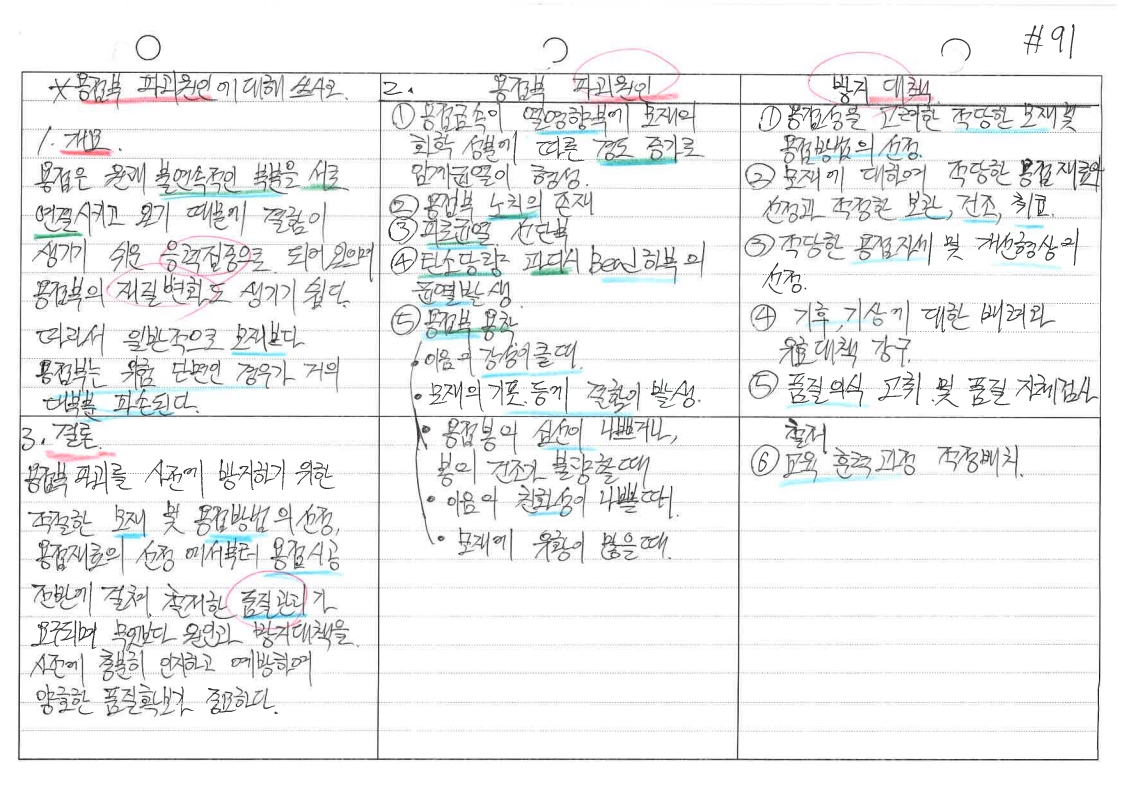 #91
* 용접부 파괴원인에 대해 쓰시오.
1. 개요.
용접은 원래 불연속적인 부분을 서로
연결시키고 있기 때문에 결함이
생기기 쉬운 응력집중으로 되어 있으며
용접부의 재질변화도 생기기 쉽다.
따라서 일반적으로 모재보다
용접부는 위험 단면인 경우가 거의
대부분 파손된다.
3. 결론.
용접부 파괴를 사전에 방지하기 위한
적절한 모재 및 용접방법의 선정,
용접재료의 선정에서부터 용접시공
전반에 걸쳐, 철저한 품질관리가
요구되며 무엇보다 원인과 방지대책을
사전에 충분히 인지하고 예방하여
양호한 품질확보가 중요하다.
2. 용접부 파괴원인
① 용접금속이 열영향부에 모재의
화학 성분에 따른 경도 증가로
담계균열이 형성.
② 용접부 노치의 존재
③ 피로균열 선단부
④ 탄소당량 과다시 Bend하부의
균열발생.
⑤ 용접부 용착
• 이음의 강성이 클때.
• 모재의 기포.등에 결함이 발생.
• 용접봉의 심선이 나쁘거나,
봉의 건조가 불량할때
• 이음의 친화성이 나쁠때.
• 모재에 유황이 많을때.
방지 대책.
① 용접성을 고려한 적당한 모재및
용접방법의 선정.
② 모재에 대하여 적당한 용접재료의
선정과 적정한 보관, 건조, 취급.
③ 적당한 용접자세 및 개선형상의
선정.
④ 기후, 기상에 대한 배려와
유효대책 강구.
⑤ 품질의식 고취 및 품질 자체검사
철저
⑥ 교육 훈련과정 적정배치.